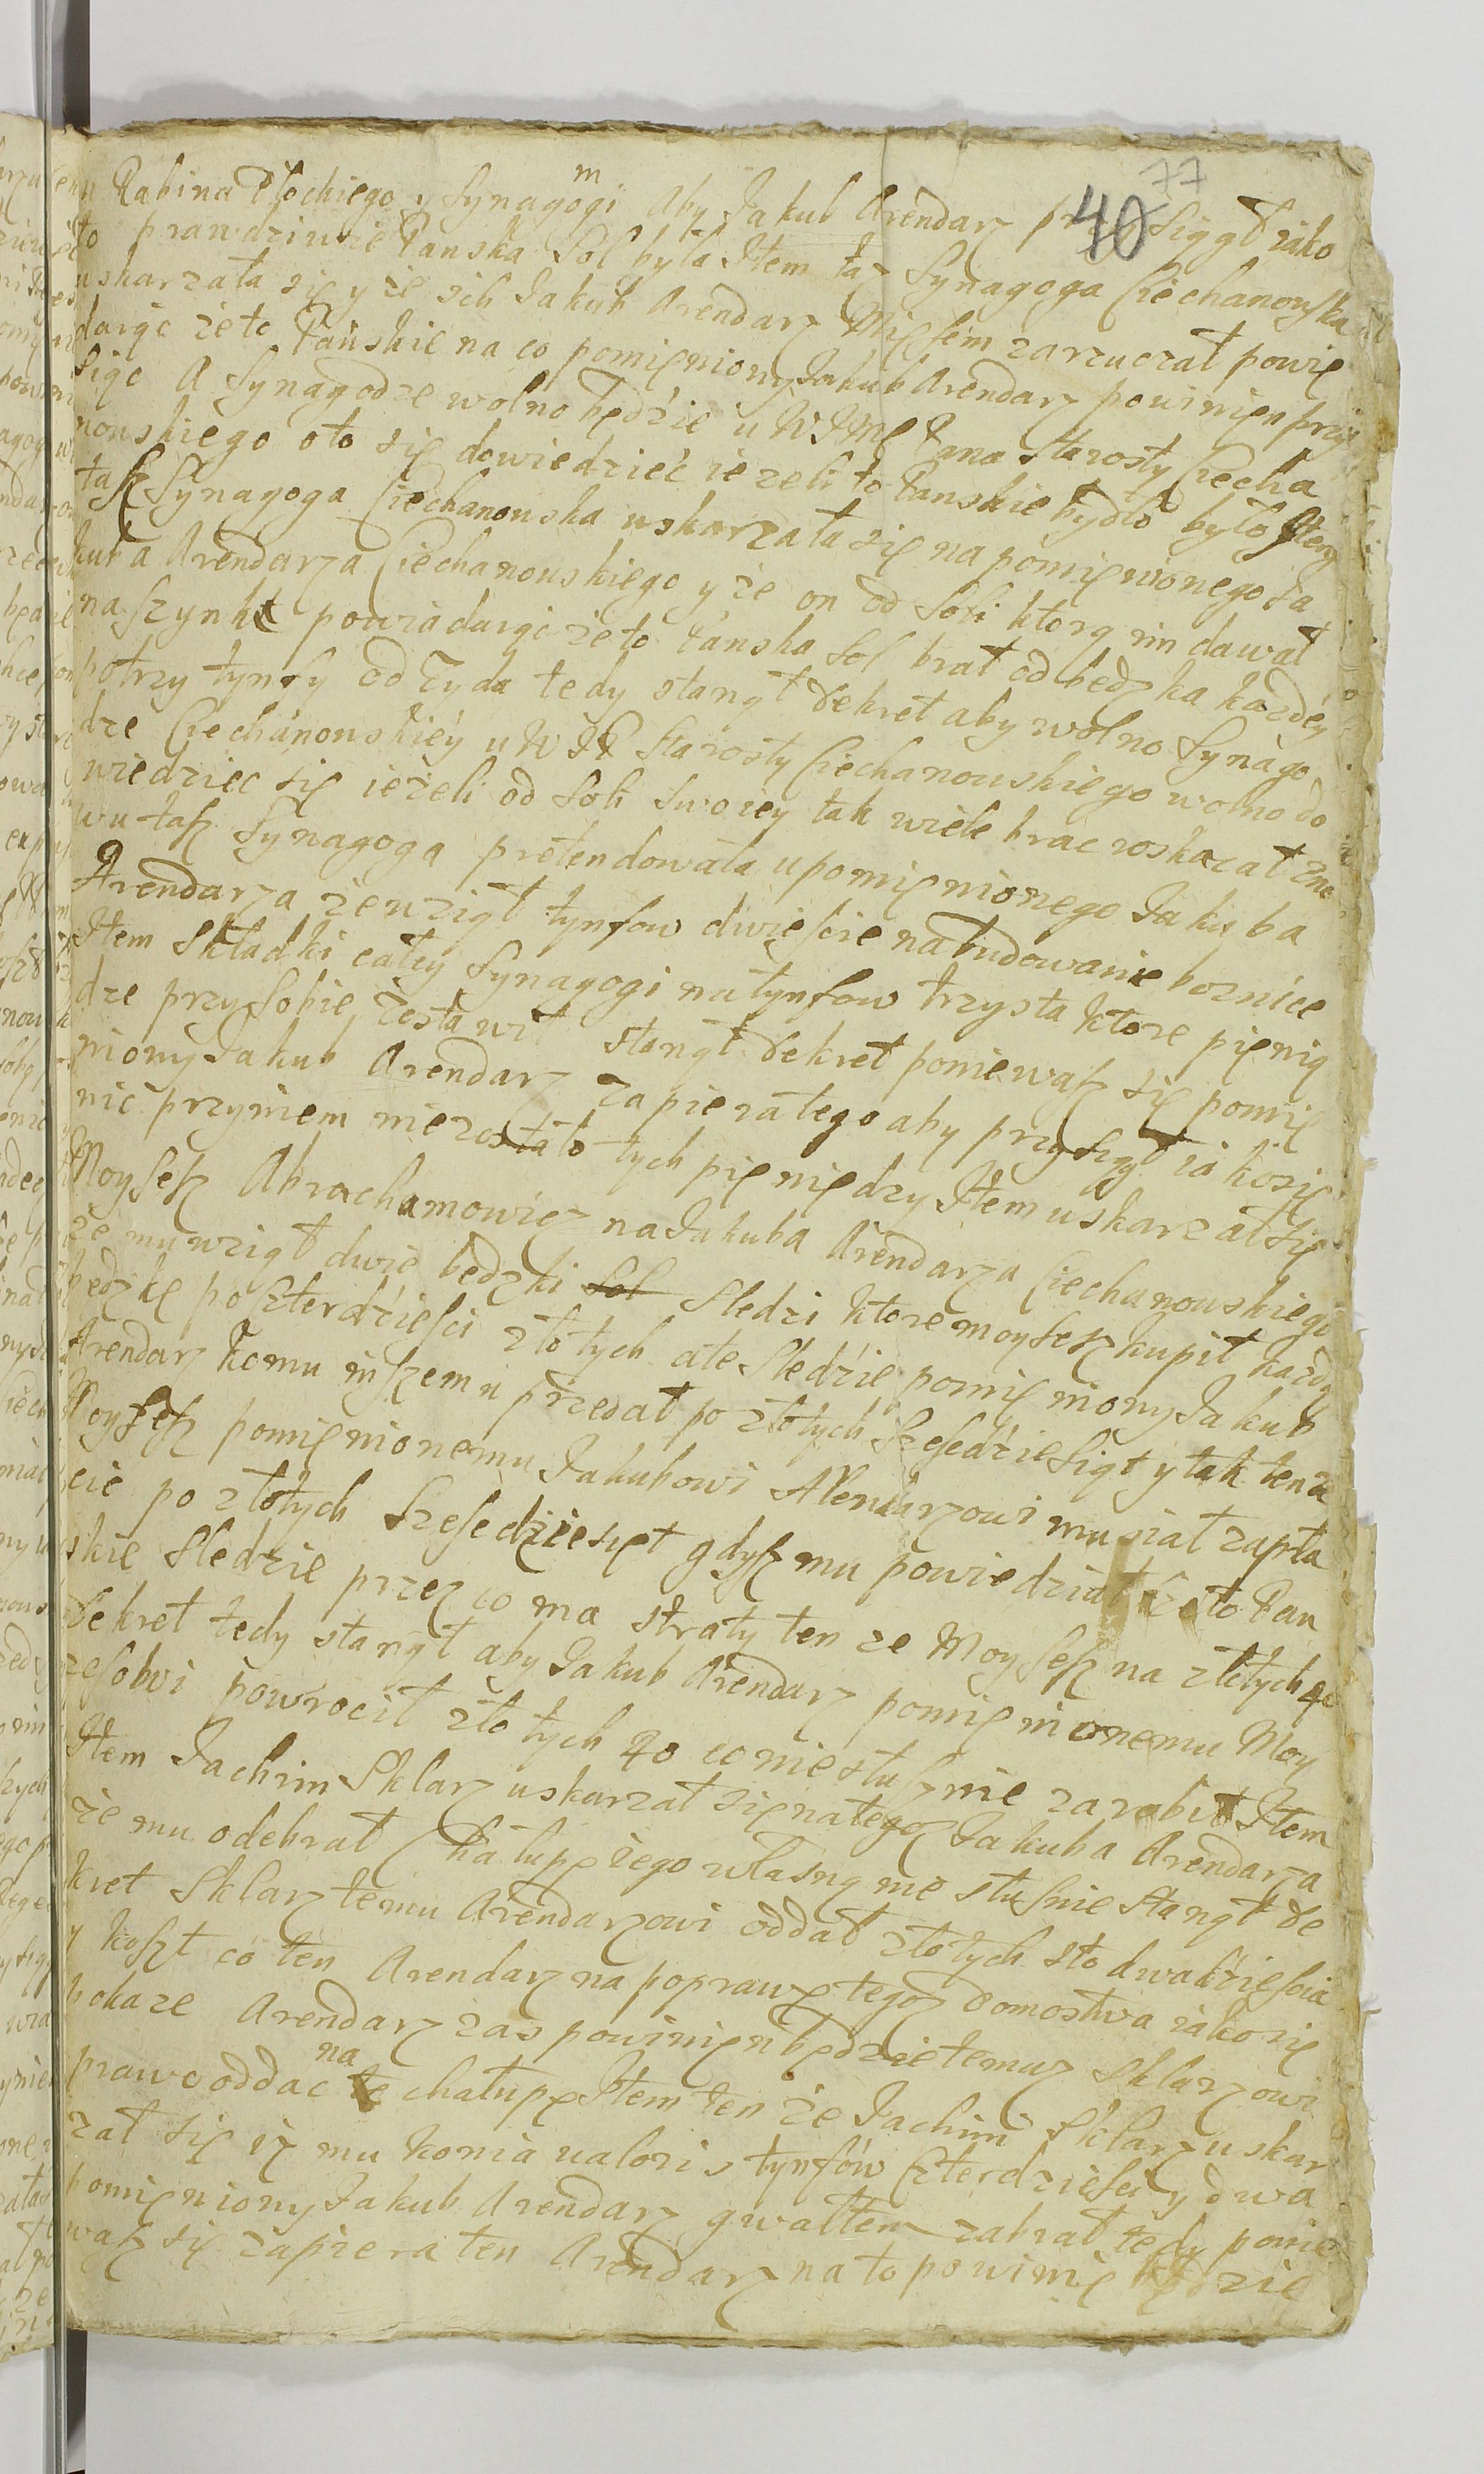 77
40
Rabina Płockiego y Synagogi m Aby Jakub Arendarz przysiągł iáko
to prawdziwie Panska Sol była Item taz Synagoga Ciechanowska
uskarzała się y ze ich Jakub Arendarz Mięsem zarzucał powię
daiąc ze to Pańskie na co pomięniony Jakub Arendarz powinięn przy
siąc A Synagodze wolno będzie u WJMc Pana Starosty Ciecha
nowskiego oto się dowiedzieć iezeli to Panskie bydło było Item
tasz Synagoga Ciechanowska uskarzała się na pomięnionego Ja
kuba Arendarza Ciechanowskiego y ze on od Soli ktorą im dawał
na szynk powiadaiąc ze to Panska Sol brał od bedzka kazdey
po trzy tynfy od Zyda tedy stanął Dekret aby wolno Synago
dze Ciechánowskiey u WJP Starosty Ciechanowskiego wolno do
wiedziec się iezeli od Soli swoiey tak wiele brac roskazał Zno
wu tasz Synagoga pretendowała u pomięnionego Jakuba
Arendarza ze wziął tynfow dwieście na budowanie boznice
Item Składki całey Synagogi na tynfow trzysta ktore pienią
dze przy Sobie zostawił stanął Dekret poniewasz się pomię
niony Jakub Arendarz zapiera tego aby przysiągł iako się
nic przyniem nie zostało tych pięniędzy Item uskarzał się
Moysesz Abrachamowicz na Jakuba Arendarza Ciechanowskiego
ze mu wziął dwie bedzki Sol Sledzi ktore moysesz kupił kazdą
bedzkę po szterdziesci złotych ale Sledzie pomięniony Jakub
Arendarz komu inszemu przedał po złotych Szescdziesiąt y tak tenze
Moysesz pomięnionemu Jakubowi Arendarzowi musiał zapła
cic po złotych Szescdziesięt gdysz mu powiedział ze to Pan
skie Sledzie przez co ma straty ten ze Moysesz na złotych 40
Dekret tedy stanął aby Jakub Arendarz pomięnionemu Moy
zesowi powrocił złotych 40 co nie słusznie zarobił Item
Item Jachim Sklarz uskarzał się na tegoz Jakuba Arendarza
ze mu odebrał Chałupę iego własną nie słusnie Stanął De
kret Sklarz temu Arendarzowi oddał złotych sto dwadziescia
y koszt co ten Arendarz na poprawę tegoz Domostwa iáko się
pokaze Arendarz zas powinięn będzie temuz Sklarzowi
prawo oddac na te chałupę Item ten ze Jachim Sklarz uskar
zał się iz mu konia ualoris tynfów szterdziesci y dwa
pomięniony Jakub Arendarz gwałtem zabrał tedy ponie
wasz się zapiera ten Arendarz na to powinię będzie